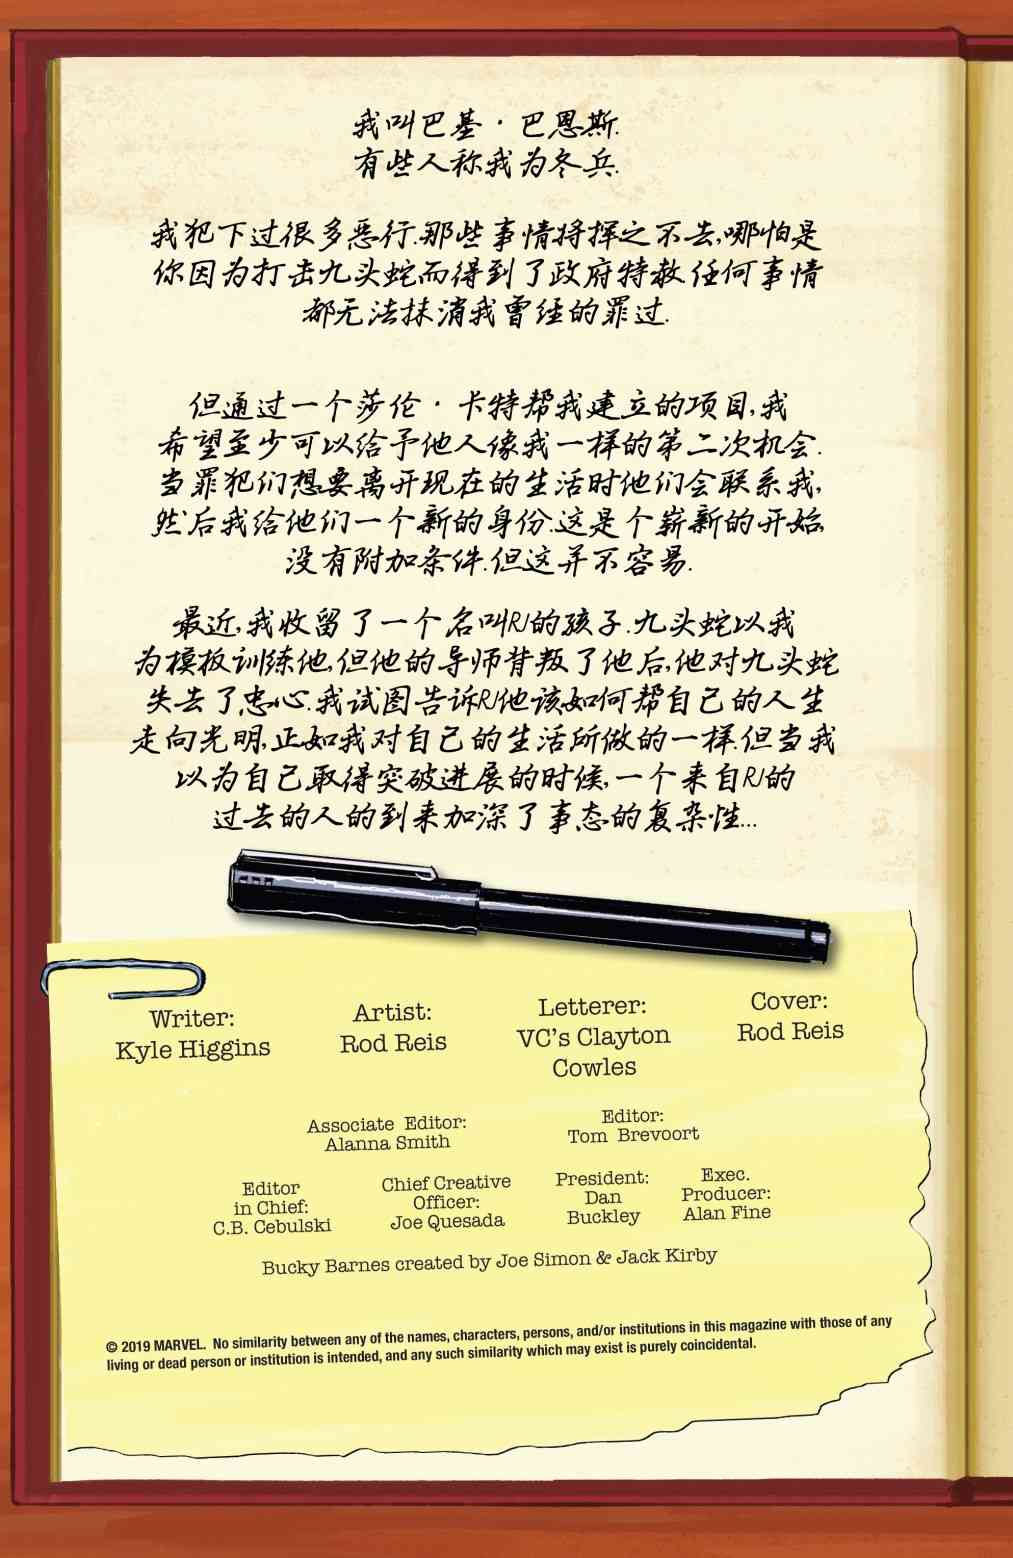 我叫巴基·巴恩斯.
有些人称我为冬兵.
我犯下过很多恶行.那些事情将挥之不去,哪怕是
你因为打击九头蛇而得到了政府特赦任何事情
都无法抹消我曾经的罪过.
但通过一个莎伦·卡特帮我建立的项目,我
希望至少可以给予他人像我一样的第二次机会.
当罪犯们想要离开现在的生活时他们会联系我,
然后我给他们一个新的身份.这是个崭新的开始,
没有附加条件.但这并不容易.
最近,我收留了一个名叫RJ的孩子.九头蛇以我
为模板训练他,但他的导师背叛了他后,他对九头蛇
失去了忠心.我试图告诉RJ他该如何帮自己的人生
走向光明,正如我对自己的生活所做的一样.但当我
以为自己取得突破进展的时候,一个来自RJ的
过去的人的到来加深了事态的复杂性...
Writer:
Kyle Higgins
Artist:
Rod Reis
Letterer:
VC's Clayton
Cowles
Cover:
Rod Reis
Associate Editor:
Alanna Smith
Editor:
Tom Brevoort
Editor
in Chief:
C.B. Cebulski
Chief Creative
Officer:
Joe Quesada
President:
Dan
Buckley
Exec.
Producer:
Alan Fine
Bucky Barnes created by Joe Simon & Jack Kirby
© 2019 MARVEL. No similarity between any of the names, characters, persons, and/or institutions in this magazine with those of any
living or dead person or institution is intended, and any such similarity which may exist is purely coincidental.